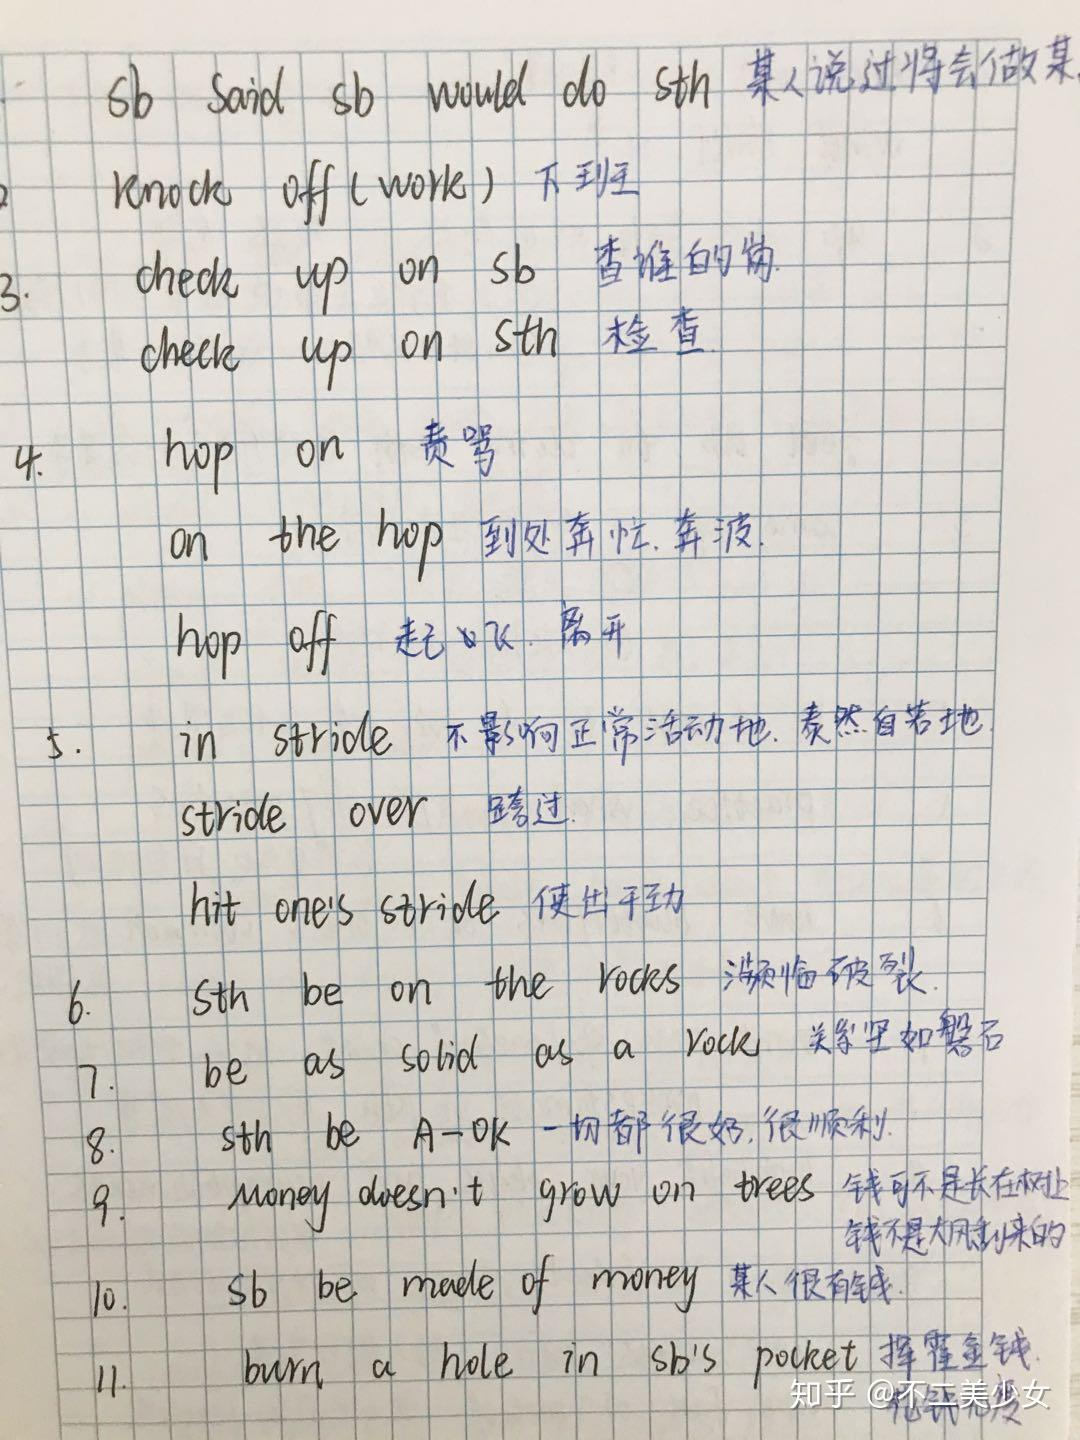 sb said sb would do sth 某人说过将会做某
2 knock off (work) 下到班
3. check up on sb 查谁的岗.
check up on sth 检查.
4. hop on 责骂
on the hop 到处奔忙. 奔波.
hop off 起飞. 离开
5. in stride 不影响正常活动地. 泰然自若地.
stride over 跨过.
hit one's stride 使出干劲
6. sth be on the rocks 濒临破裂.
7. be as solid as a rock 关系坚如磐石
8. sth be A-OK 一切都很好. 很顺利.
9. Money doesn't grow on trees 钱可不是长在树上
钱不是大风刮来的
10. sb be made of money 某人很有钱.
11. burn a hole in sb's pocket 挥霍金钱.
知乎 @不二美少女